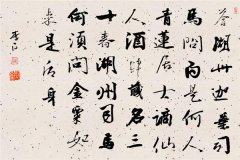 荅湖州迦葉司
馬問白是何人
青蓮居士謫仙
人酒肆藏名三
十春湖州司馬
何須問金粟如
来是後身